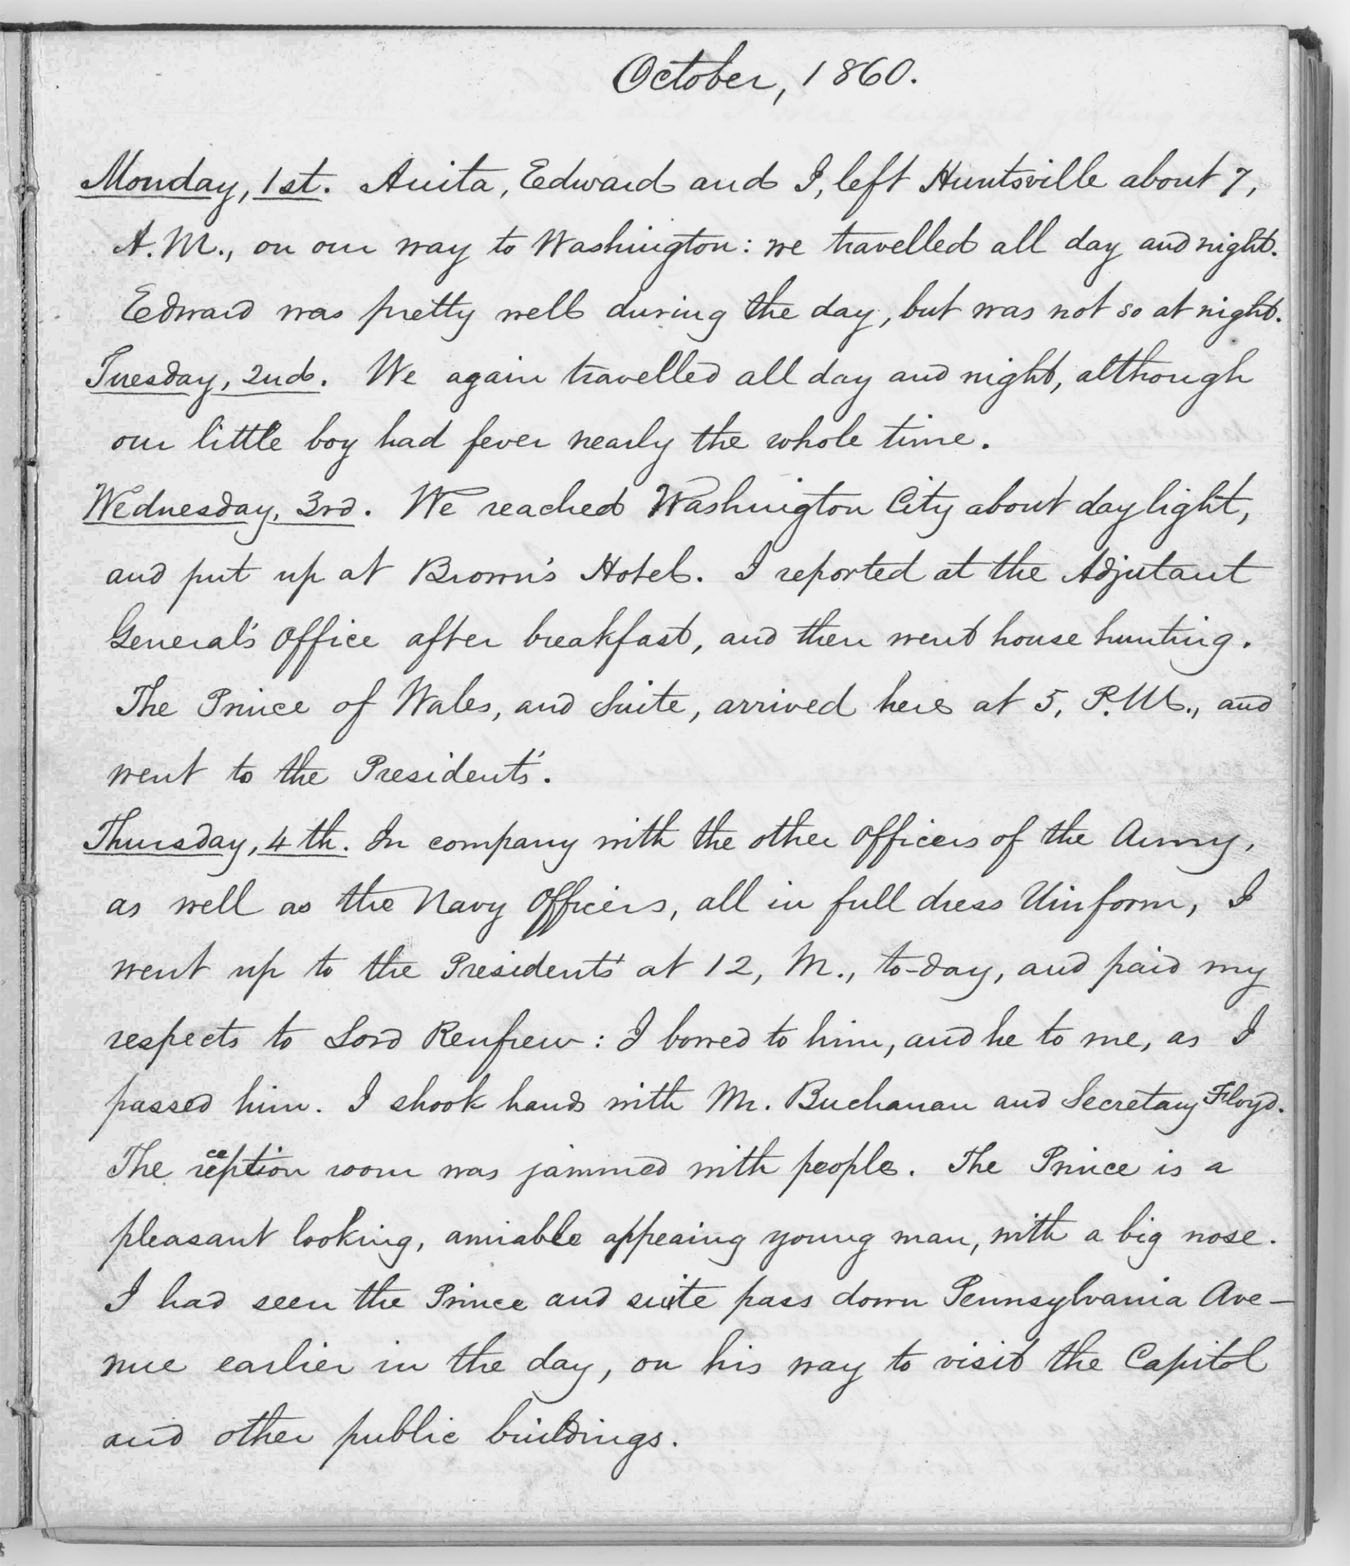 October, 1860.
Monday, 1st. Anita, Edward and I, left Huntsville about 7,
A.M., on our way to Washington: we travelled all day and night.
Edward was pretty well during the day, but was not so at night.
Tuesday, 2nd. We again travelled all day and night, although
our little boy had fever nearly the whole time.
Wednesday, 3rd. We reached Washington City about day light,
and put up at Brown's Hotel. I reported at the Adjutant
General's Office after breakfast, and then went house hunting.
The Prince of Wales, and Suite, arrived here at 5, P.M., and
went to the President's.
Thursday, 4th. In company with the other Officers of the Army,
as well as the Navy Officers, all in full dress Uniform, I
went up to the President's at 12, M., to-day, and paid my
respects to Lord Renfrew: I bowed to him, and he to me, as I
passed him. I shook hands with Mr. Buchanan and Secretary Floyd.
The reception room was jammed with people. The Prince is a
pleasant looking, amiable appearing young man, with a big nose.
I had seen the Prince and suite pass down Pennsylvania Ave-
nue earlier in the day, on his way to visit the Capitol
and other public buildings.